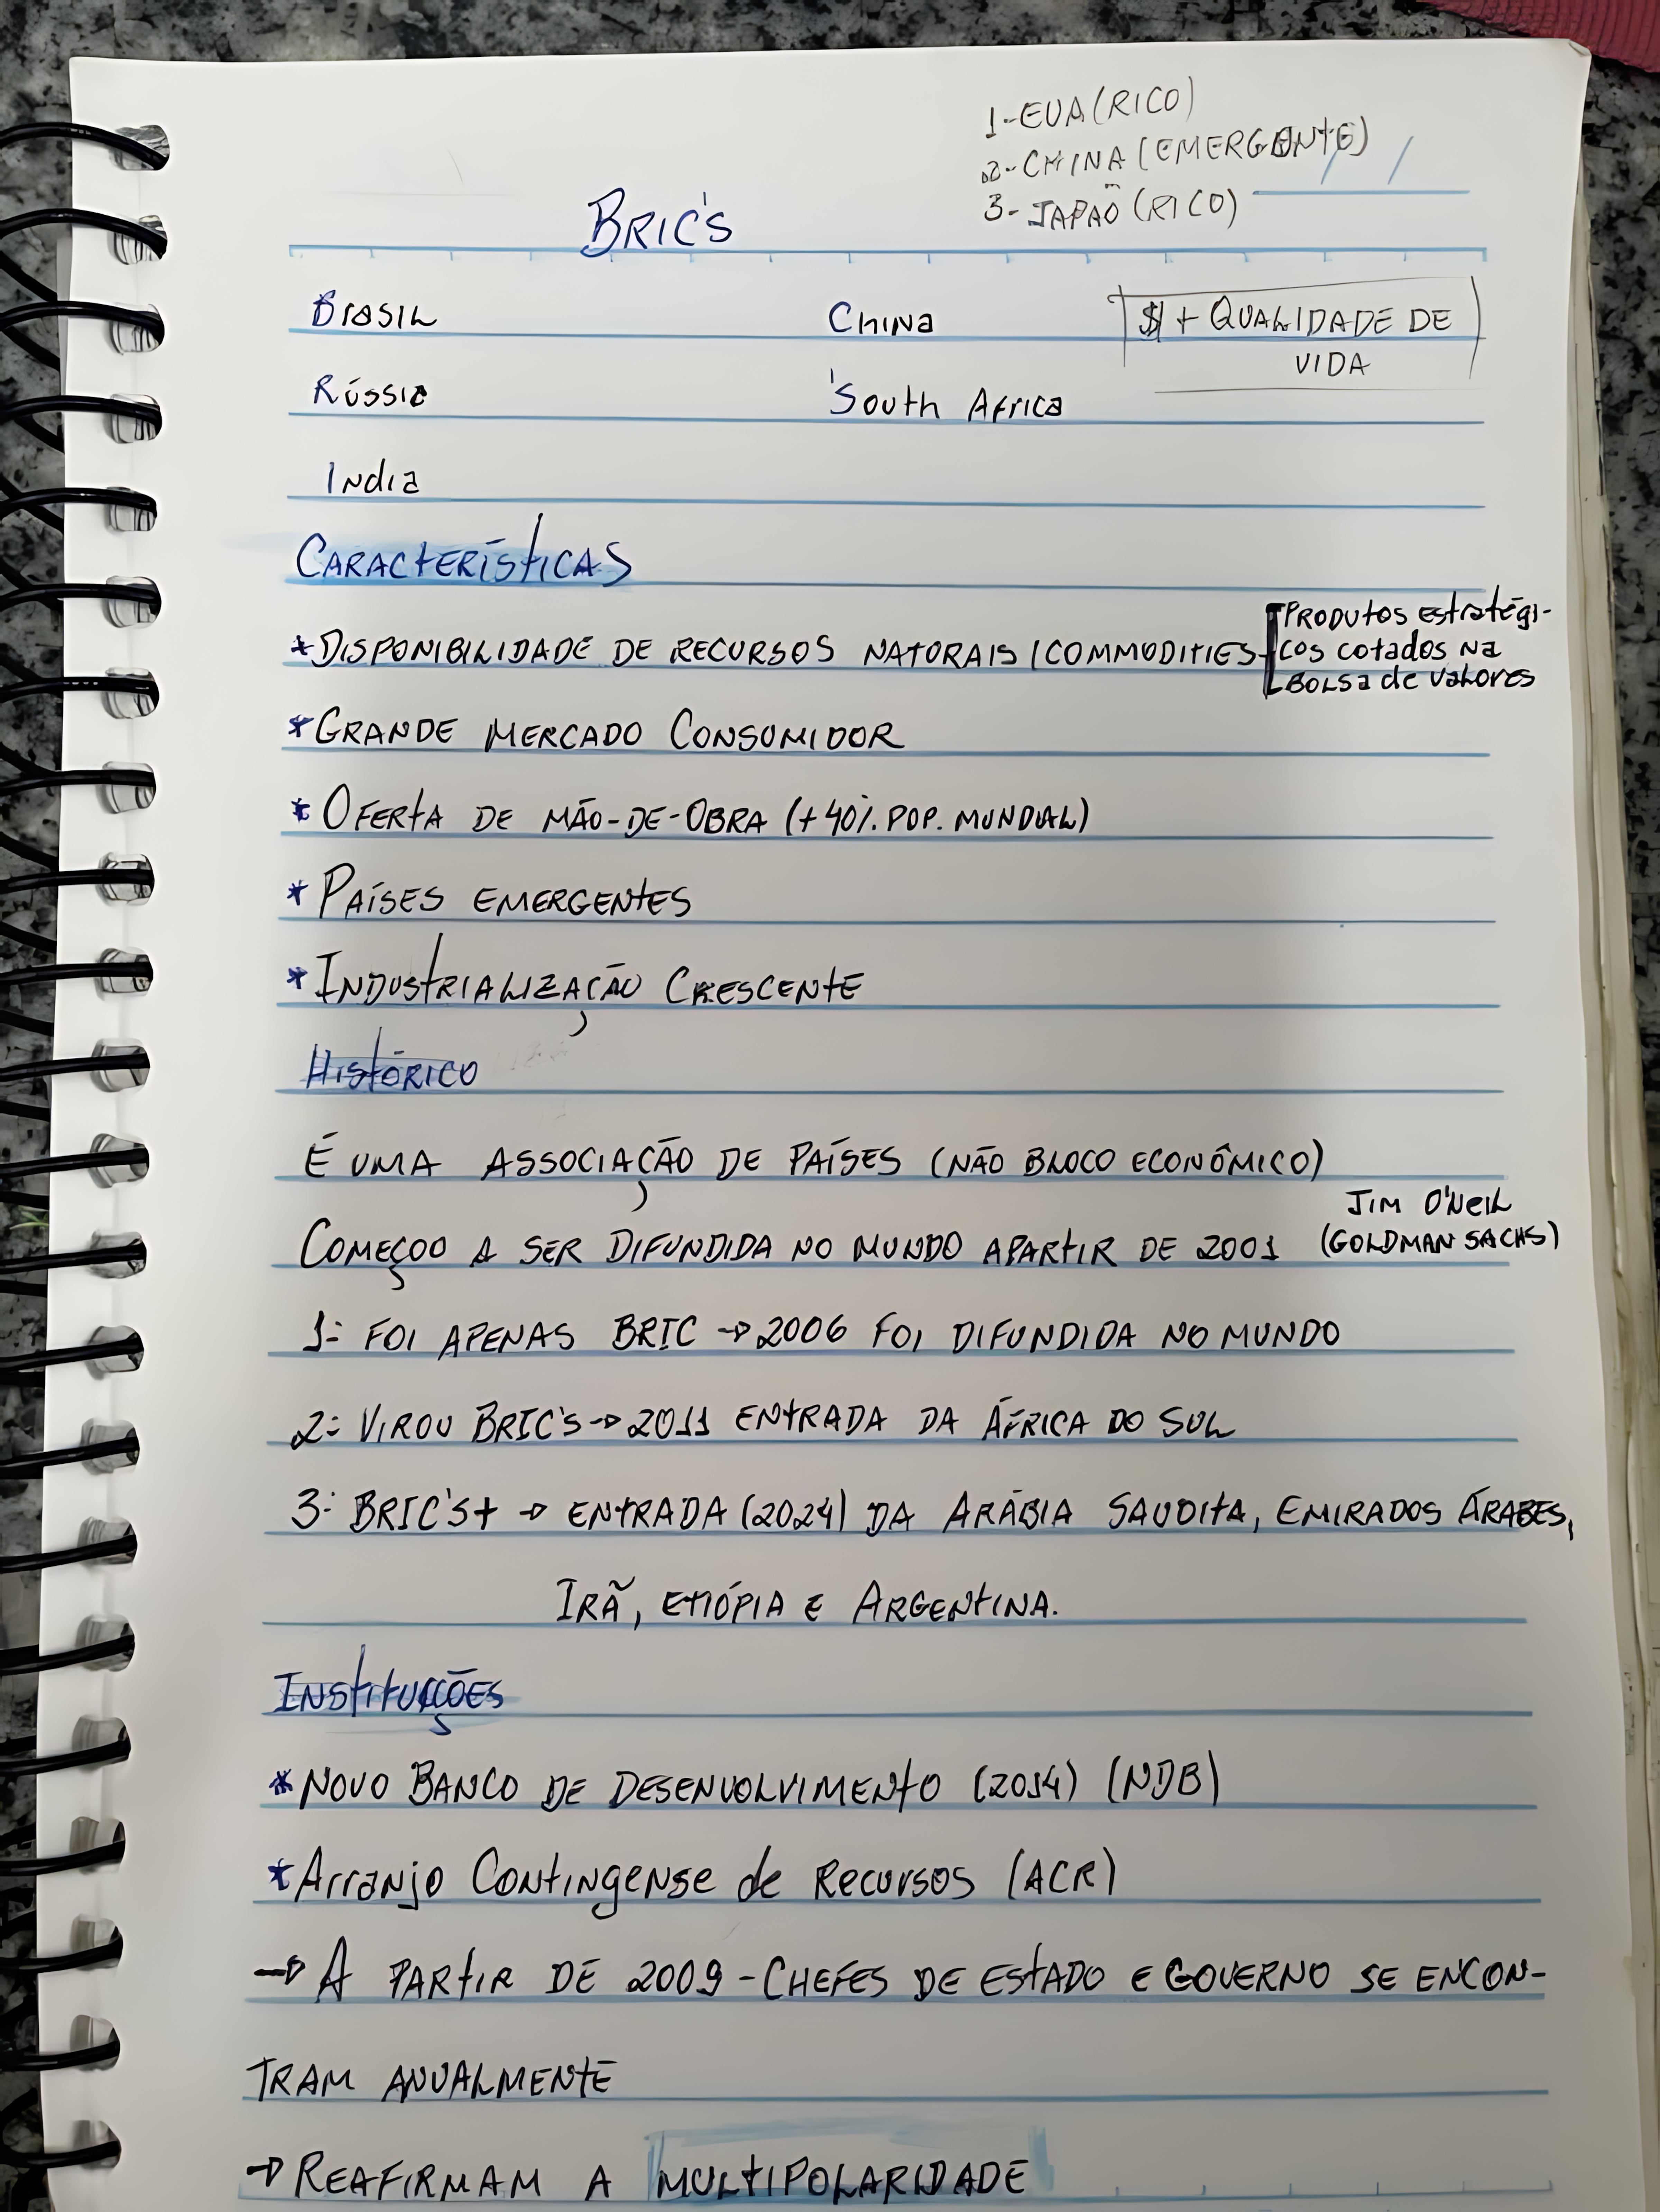 1-EUA(RICO)
2-CHINA(EMERGENTE)
3-JAPÃO(RICO)
BRIC'S
BRASIL China $ + QUALIDADE DE
VIDA
Rússia 'South África
Índia
CARACTERÍSTICAS
*DISPONIBILIDADE DE RECURSOS NATURAIS/COMMODITIES PRODUTOS ESTRATÉGI-
COS COTADOS NA
BOLSA de VALORES
*GRANDE MERCADO CONSUMIDOR
*OFERTA DE MÃO-DE-OBRA (+40% POP. MUNDIAL)
*PAÍSES EMERGENTES
*INDUSTRIALIZAÇÃO CRESCENTE
HISTÓRICO
É UMA ASSOCIAÇÃO DE PAÍSES (NÃO BLOCO ECONÔMICO)
COMEÇOO A SER DIFUNDIDA NO MUNDO APARTIR DE 2001 JIM O'NEIL
(GOLDMAN SACHS)
1: FOI APENAS BRIC → 2006 FOI DIFUNDIDA NO MUNDO
2: VIROU BRIC'S → 2011 ENTRADA DA ÁFRICA DO SUL
3: BRIC'S+ → ENTRADA (2024) DA ARÁBIA SAUDITA, EMIRADOS ÁRABES,
IRÃ, ETIÓPIA E ARGENTINA.
INSTITUIÇÕES
*NOVO BANCO DE DESENVOLVIMENTO (2014) (NDB)
*Arranjo Contingense de Recursos (ACR)
→ A PARTIR DE 2009 - CHEFES DE ESTADO E GOVERNO SE ENCON-
TRAM ANUALMENTE
→ REAFIRMAM A MULTIPOLARIDADE